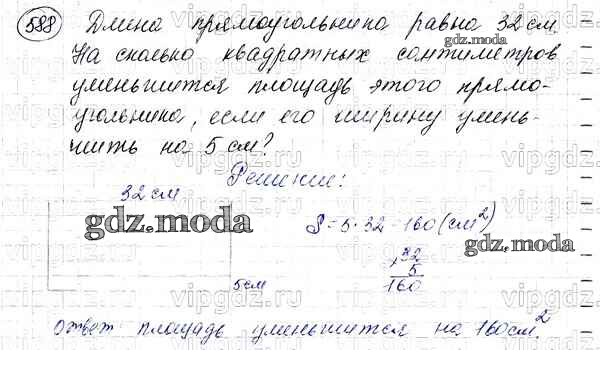 588 Длина прямоугольника равна 32 см.
На сколько квадратных сантиметров
уменьшится площадь этого прямо-
угольника, если его ширину умень-
шить на 5 см?
Решение:
32 см
S = 5 · 32 = 160 (см²)
32
5
160
5 см
Ответ: площадь уменьшится на 160 см².
gdz.moda
gdz.moda
gdz.moda
vipgdz.ru